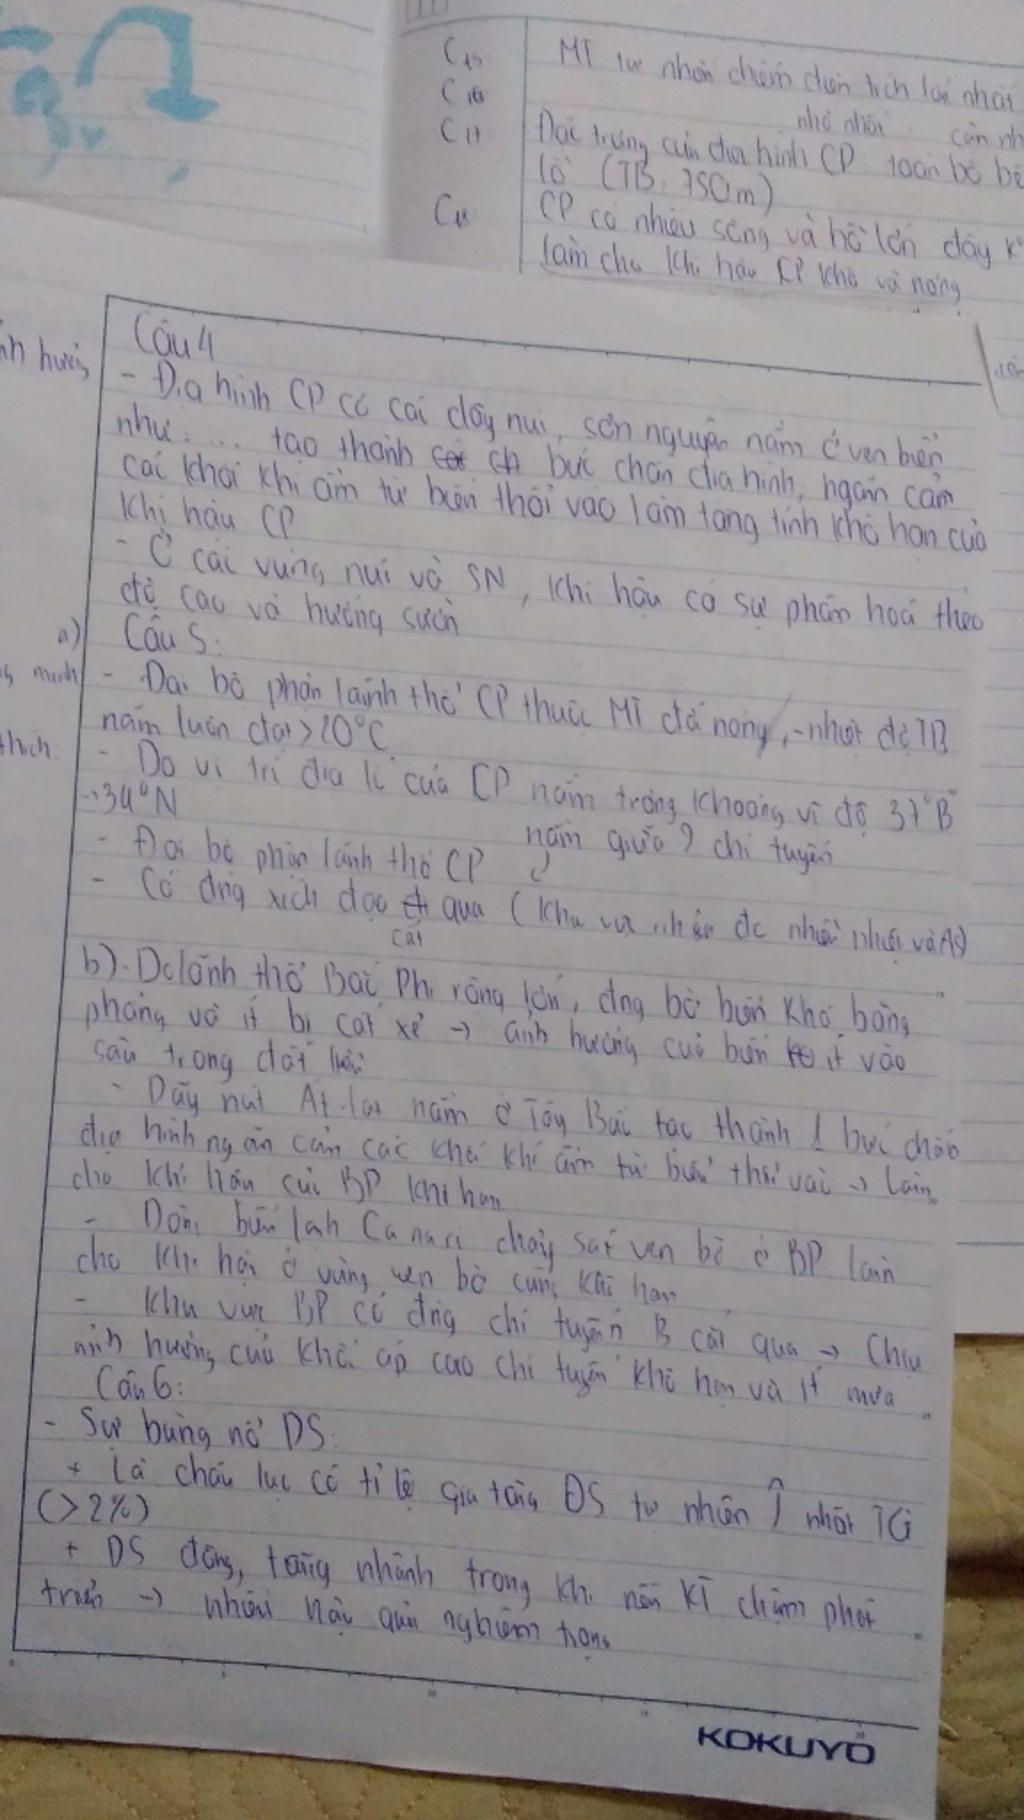 C15 MT tự nhiên chiếm diện tích lớn nhất
C16 nhỏ nhất cận nh
C17 Đặc trưng của địa hình CP toàn bộ
lồ (TB: 750m)
C18 CP có nhiều sông và hồ lớn đây
làm cho khí hậu CP khô và nóng
hưởng
Câu 4
- Địa hình CP có các dãy núi, sơn nguyên nằm ở ven biển
như: ... tạo thành bức chắn địa hình, ngăn cản
các khối khí ẩm từ biển thổi vào làm tăng tính khô hạn của
khí hậu CP
- Ở các vùng núi và SN, khí hậu có sự phân hoá theo
độ cao và hướng sườn
a) Câu 5:
minh - Đại bộ phận lãnh thổ CP thuộc MT đới nóng, - nhiệt độ TB
năm luôn đạt > 20°C
thích: - Do vị trí địa lí của CP nằm trong khoảng vĩ độ 37°B
→ 34°N
- Đại bộ phận lãnh thổ CP nằm giữa 2 chí tuyến
- Có đng xích đạo cắt qua (khu vực nhận đc nhiều nhiệt và AS)
b) - Do lãnh thổ Bắc Phi rộng lớn, đng bờ biển khá bằng
phẳng và ít bị cắt xẻ → ảnh hưởng của biển ít vào
sâu trong đất liền
- Dãy núi At-lat nằm ở Tây Bắc tạo thành 1 bức chắn
địa hình ngăn cản các khối khí ẩm từ biển thổi vào → làm
cho khí hậu của BP khô hạn
- Dòng biển lạnh Canari chảy sát ven bờ ở BP làm
cho khí hậu ở vùng ven bờ cũng khô hạn
- Khu vực BP có đng chí tuyến B cắt qua → Chịu
ảnh hưởng của khối áp cao chí tuyến khô hạn và ít mưa
Câu 6:
- Sự bùng nổ DS:
+ Là châu lục có tỉ lệ gia tăng DS tự nhiên ↑ nhất TG
(>2%)
+ DS đông, tăng nhanh trong khi nền KT chậm phát
triển → nhiều hậu quả nghiêm trọng
KOKUYO